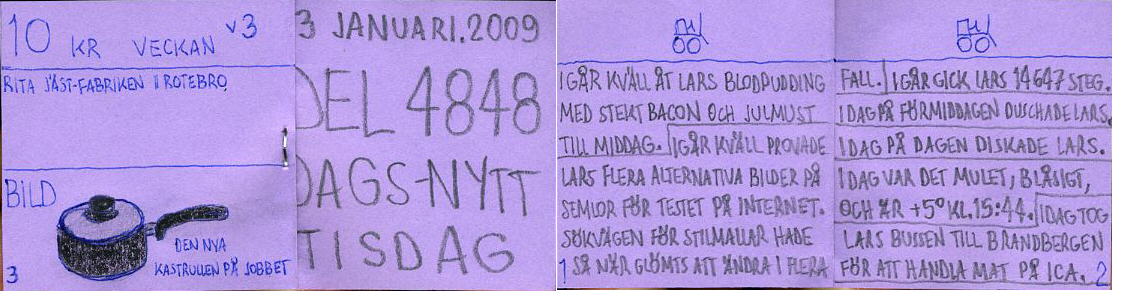 10 KR VECKAN V3
RITA JÄST-FABRIKEN I ROTEBRO
BILD
DEN NYA
KASTRULLEN PÅ JOBBET
3
3 JANUARI.2009
DEL 4848
DAGS-NYTT
TISDAG
I GÅR KVÄLL ÅT LARS BLODPUDDING
MED STEKT BACON OCH JULMUST
TILL MIDDAG. IGÅR KVÄLL PROVADE
LARS FLERA ALTERNATIVA BILDER PÅ
SEMLOR FÖR TESTET PÅ INTERNET.
SÖKVÄGEN FÖR STILMALLAR HADE
1 SÅ NÄR GLÖMTS ATT ÄNDRA I FLERA
FALL. IGÅR GICK LARS 14647 STEG.
IDAG PÅ FÖRMIDDAGEN DUSCHADE LARS.
IDAG PÅ DAGEN DISKADE LARS.
IDAG VAR DET MULET, BLÅSIGT,
OCH ÄR +5° KL.15:44. IDAG TOG
LARS BUSSEN TILL BRANDBERGEN
FÖR ATT HANDLA MAT PÅ ICA. 2